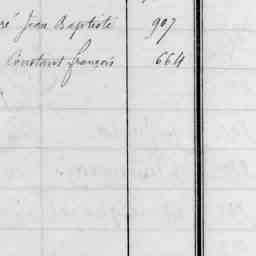 ré Jean Baptiste 907
Constant françois 664